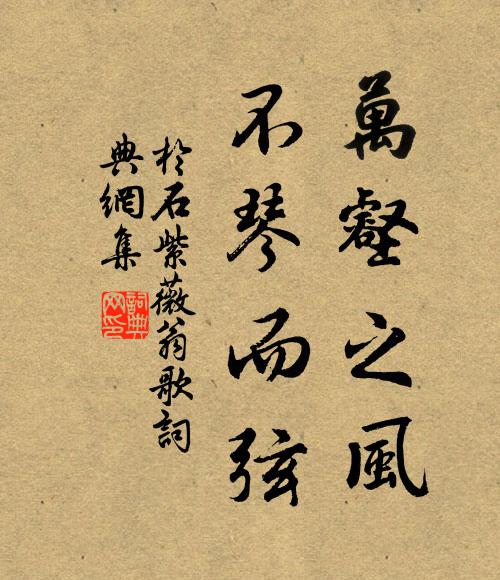 萬壑之風
不琴而弦
於石紫薇翁歌詞
典網集
詞典網印